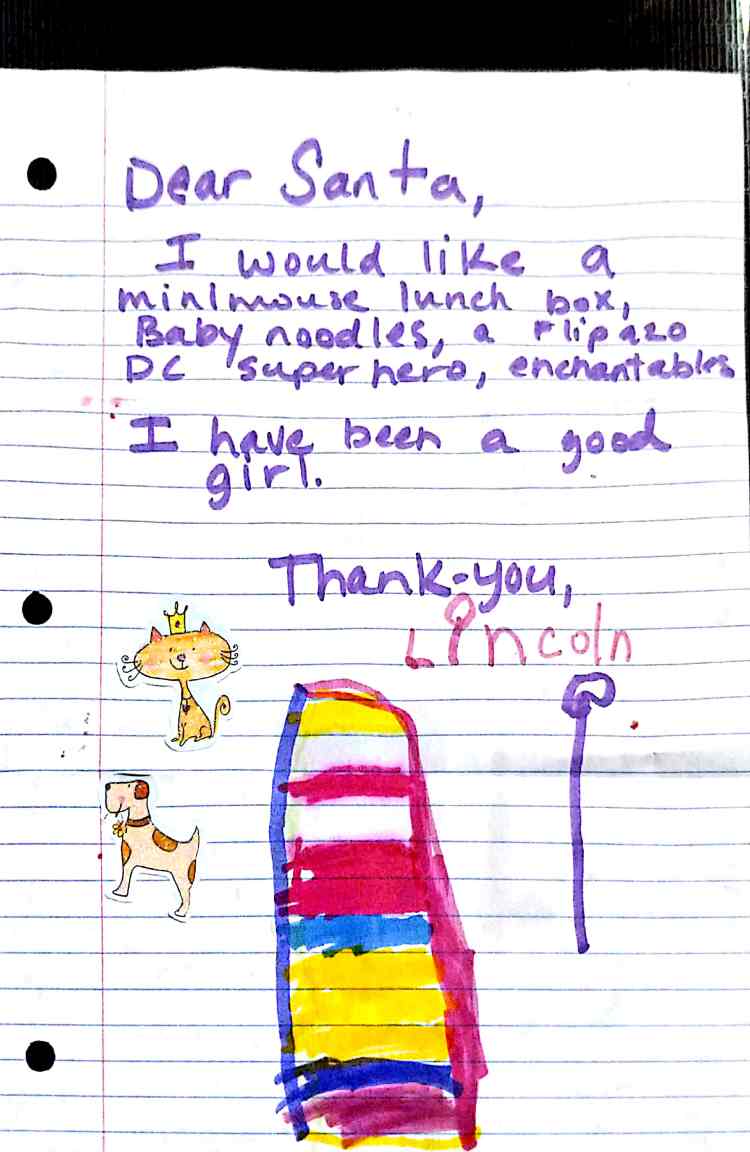 Dear Santa,
I would like a
minimouse lunch box,
Baby noodles, a flipazo
DC super hero, enchantables
I have been a good
girl.
Thank-you,
Lincoln